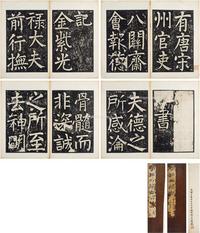 有唐宋
州官吏
八關齋
會報德
記
金紫光
祿大夫
前行撫
書
夫德之
所感淪
骨髓而
非深誠
之所至
去神明